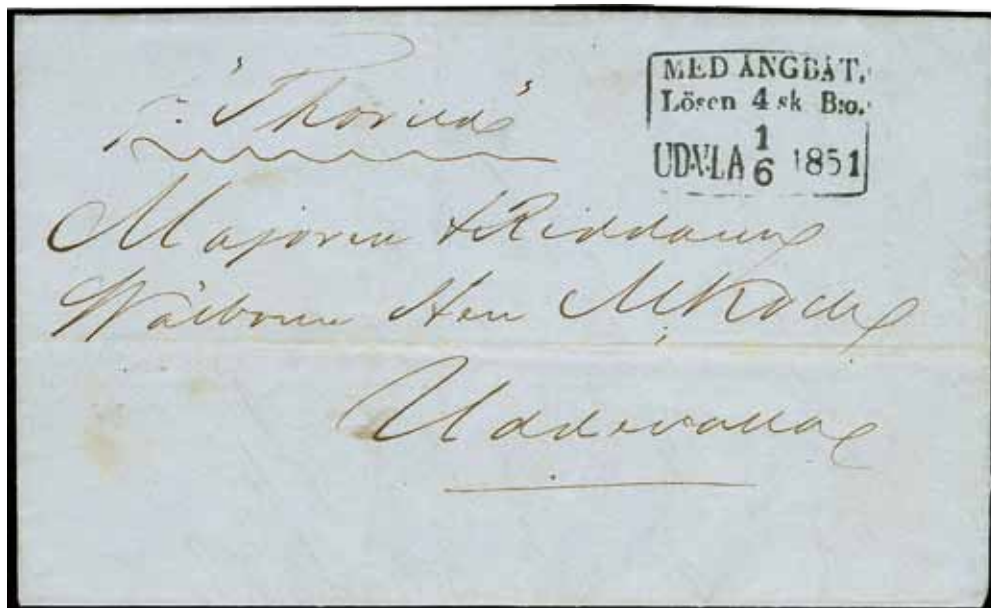 MED ÅNGBÅT.
Lösen 4 sk B:o.
UDV:LA 1/6 1851
p: "Thorild"
Majoren & Riddaren
Wälborne Herr M Koch
Uddevalla